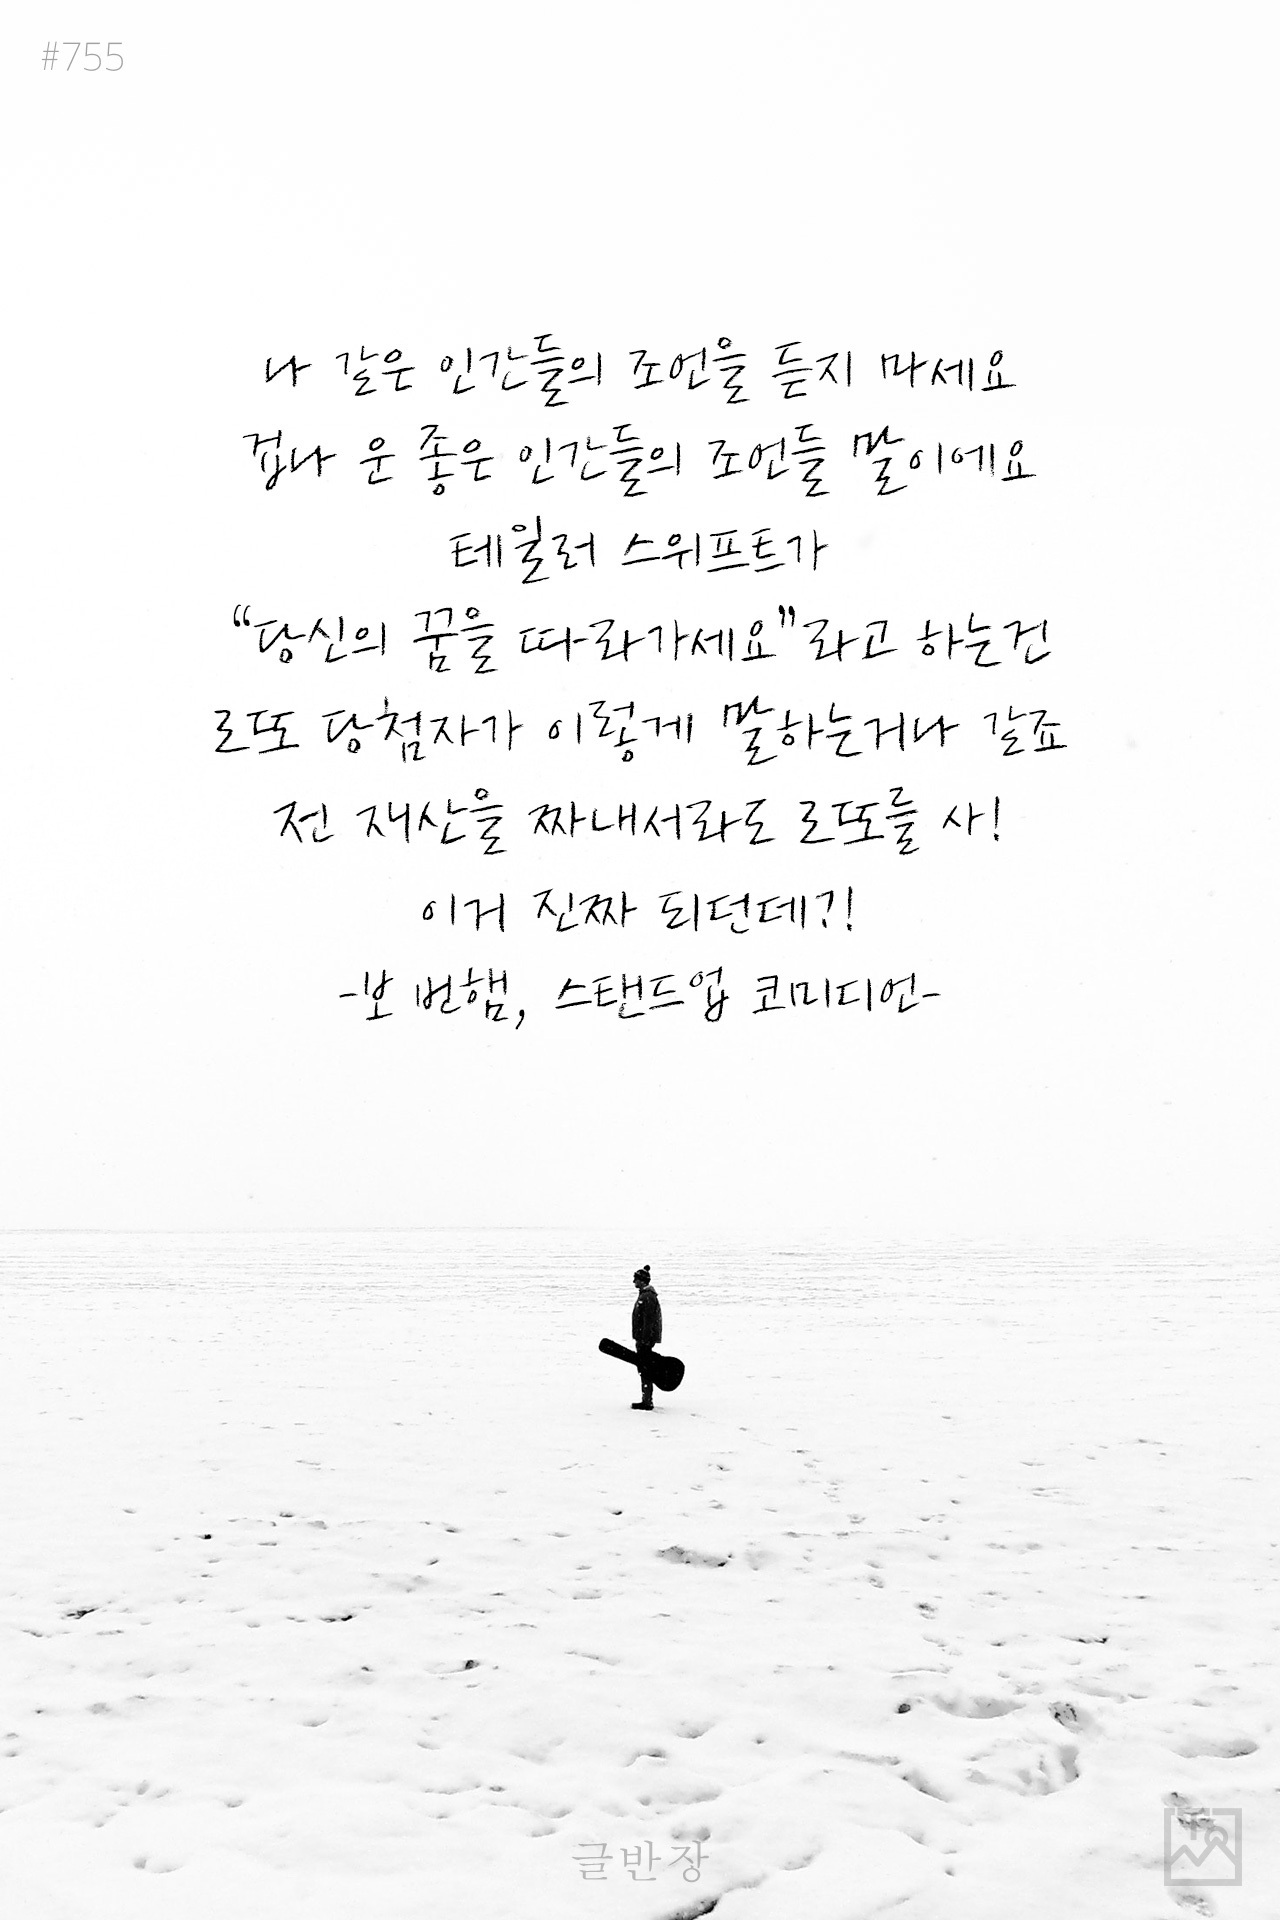 #755
나 같은 인간들의 조언을 듣지 마세요
겁나 운 좋은 인간들의 조언들 말이에요
테일러 스위프트가
“당신의 꿈을 따라가세요”라고 하는건
로또 당첨자가 이렇게 말하는거나 같죠
전 재산을 짜내서라도 로또를 사!
이거 진짜 되던데?!
-보 번햄, 스탠드업 코미디언-
글반장